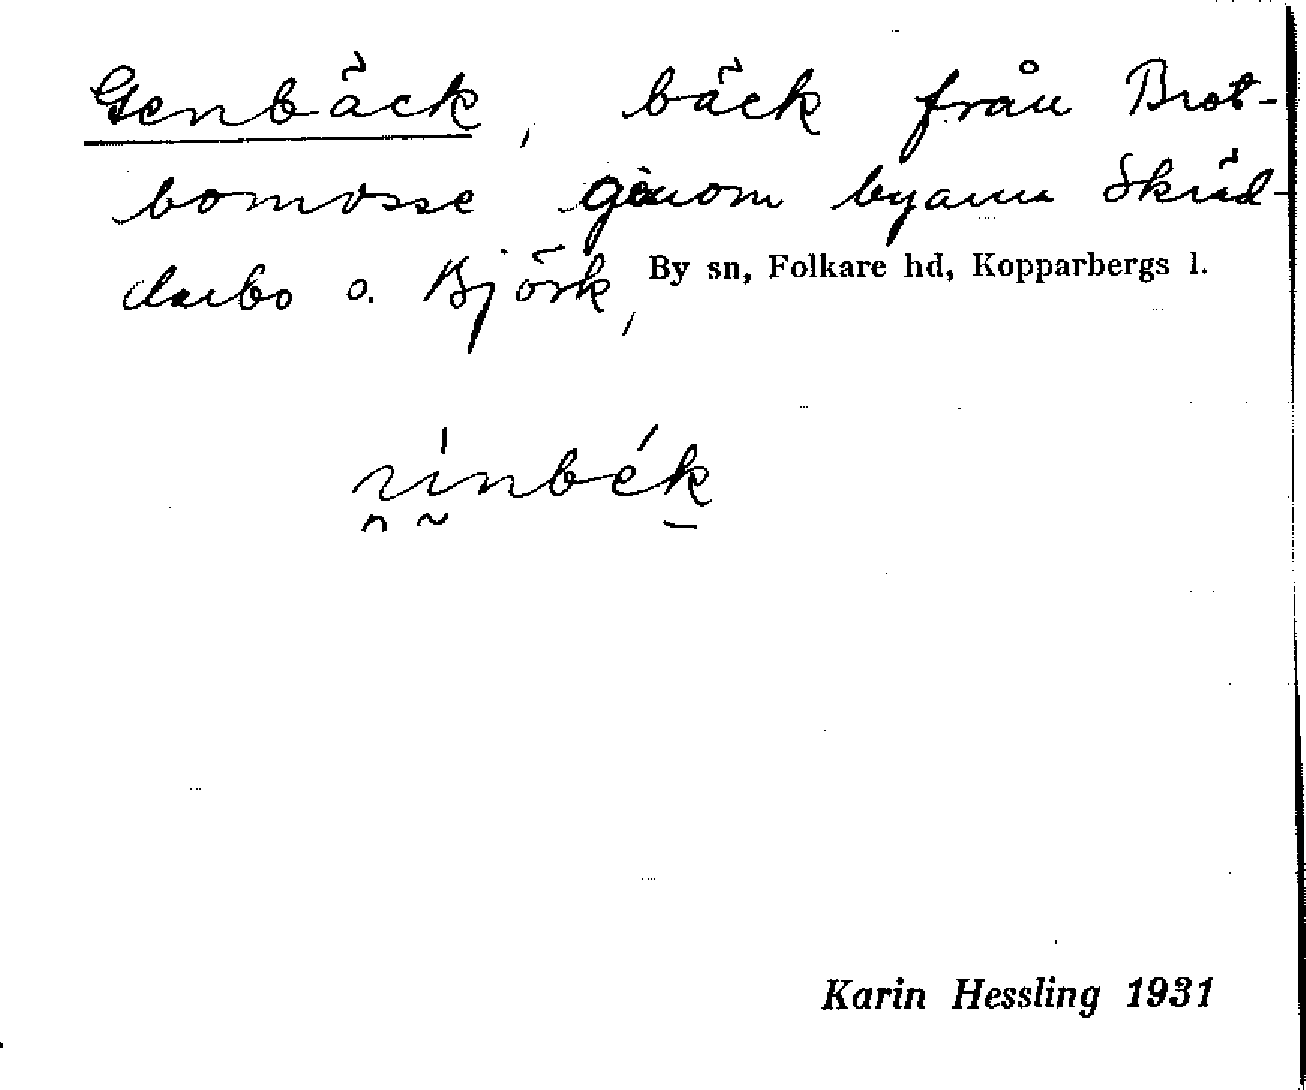 Genbäck, bäck från Brot-
bomosse genom byarna Skräd-
darbo o. Björk,
By sn, Folkare hd, Kopparbergs l.
Karin Hessling 1931